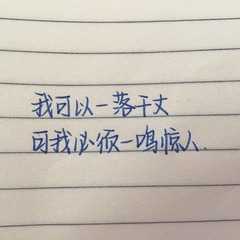 我可以一落千丈
可我必须一鸣惊人.